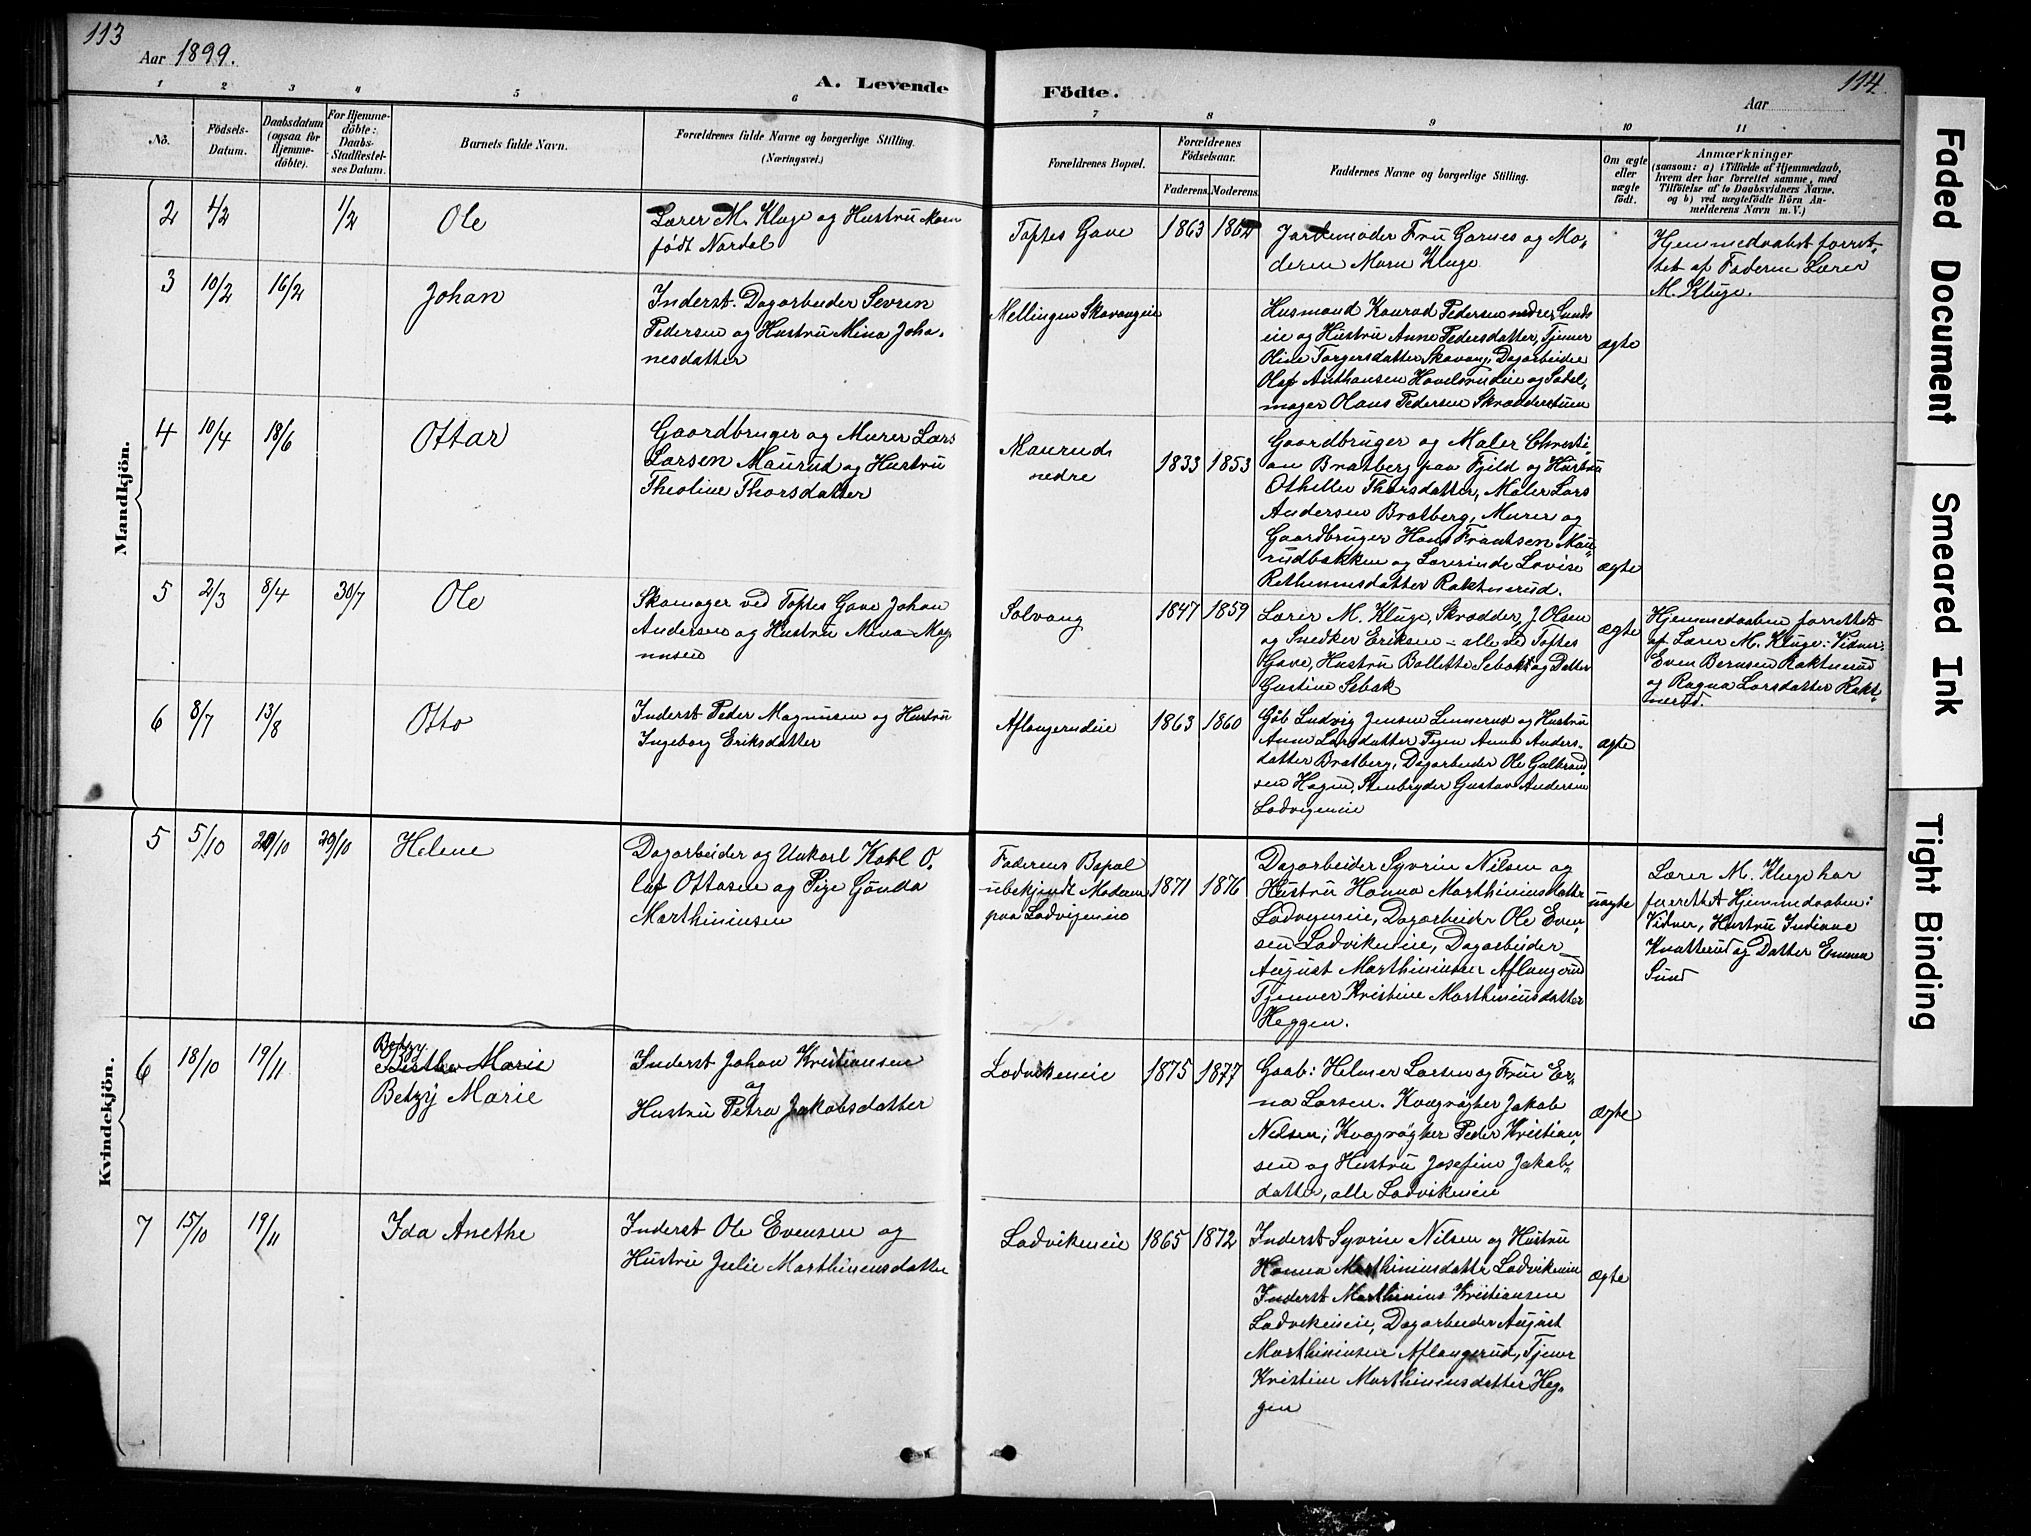 113
Aar 1899.
A. Levende
Födte.
114
Aar
1 2 3 4 5 6 7 8 9 10 11
No.
Födsels-
Datum.
Daabsdatum
(ogsaa for
Hjemme-
döbte).
For Hjemme-
döbte:
Daabs-
Stadfæstel-
ses Datum.
Barnets fulde Navn.
Forældrenes fulde Navne og borgerlige Stilling.
(Næringsvei.)
Forældrenes Bopæl.
Forældrenes
Födselsaar.
Faderens. Moderens.
Faddernes Navne og borgerlige Stilling.
Om ægte
eller
uægte
födt.
Anmærkninger
(saasom: a) i Tilfælde af Hjemmedaab,
hvem der har forrettet samme, med
Tilföielse af to Daabsvidners Navne.
og b) ved uægtefödte Börn An-
melderens Navn m. V.)
Mandkjön.
2
1/2
Ole
Lærer M. Kluge og Hustru
født Nordal
Toftes Gave
1863 1862
Jordemoder Fru Garnes og Mo-
deren Marn Kluge
Hjemmedaabet forret-
tet af Faderen Lærer
M. Kluge.
3
10/2
16/2
Johan
Inderst. Dagarbeider Sevrin
Pedersen og Hustru Mina Joha-
nesdatter
Nellingen Skavangeie
Husmand Konrad Pedersen nedre Sunds
eie og Hustru Anne Pedersdatter, Tjener
Oline Torgersdatter Skavang, Dagarbeider
Olaf Anthonsen Hovelsrudeie og Sadel-
mager Olaus Pedersen Skrædderstuen
ægte
4
10/4
18/6
Ottar
Gaardbruger og Murer Lars
Larsen Maurud og Hustru
Theoline Thorsdatter
Maurud
nedre
1833 1853
Gaardbruger og Maler Christi-
an Bratberg paa Fjeld og Hustru
Othellie Thorsdatter, Maler Lars
Andersen Bratberg, Murer og
Gaardbruger Hans Frantsen Mau-
rudbakken og Lærerinde Lovise
Raknerud.
ægte
5
2/3
8/4
30/7
Ole
Skomager ved Toftes Gave Johan
Andersen og Hustru Mina Mag-
nusen
Solvang
1847 1859
Lærer M. Kluge, Skrædder J. Olsen
og Snedker Eriksen – alle ved Toftes
Gave, Hustru Bollette Sebak og Datter
Gustine Sebak
ægte
Hjemmedaaben forrettet
af Lærer M. Kluge: Vidner
Even Berntsen Raknerud
og Ragna Larsdatter Rak-
nerud.
6
8/7
13/8
Otto
Inderst Peder Magnusen og Hustru
Ingeborg Eriksdatter
Aflangerudeie
1863 1860
Gbr Ludvig Jensen Linnerud og Hustru
Anne Larsdatter Pigen Anna Anders-
datter Bratberg, Dagarbeider Ole Gulbrand-
sen Hagen, Stenbryder Gustav Andersen
Ladvigeneie
ægte
Kvindekjön.
5
5/10
29/10
29/10
Helene
Dagarbeider og Unkarl Karl O-
laf Ottosen og Pige Gunda
Marthiniusen
Faderens Bopæl
ubekjendt Moderen
paa Ladvigeneie
1871 1876
Dagarbeider Syvrin Nilsen og
Hustru Hanna Marthiniusdatter
Ladvigeneie, Dagarbeider Ole Even-
sen Ladvikeneie, Dagarbeider
August Marthiniusen Aflangerud
Tjener Kristine Marthiniusdatter
Heggen.
uægte
Lærer M. Kluge har
forrettet Hjemmedaaben:
Vidner, Hustru Indiane
Knatterud og Datter Emma
Sund
6
18/10
19/11
Betzy
Marie
Betzy Marie
Inderst Johan Kristiansen
og
Hustru Petra Jakobsdatter
Ladvikeneie
1875 1877
Gaab: Helmer Larsen og Frue Er-
na Larsen. Kvægrøgter Jakob
Nilsen, Kvægrøgter Peder Kristian-
sen og Hustru Josefine Jakobs-
datter, alle Ladvikeneie
ægte
7
15/10
19/11
Ida Anethe
Inderst Ole Evensen og
Hustru Julie Marthiniusdatter
Ladvikeneie
1865 1872
Inderst Syvrin Nilsen og Hustru
Hanna Marthiniusdatter Ladvikeneie
Inderst Marthinius Kristiansen
Ladvikeneie, Dagarbeider August
Marthiniusen Aflangerud, Tjener
Kristine Marthiniusdatter Heg-
gen
ægte
Faded Document
Smeared Ink
Tight Binding